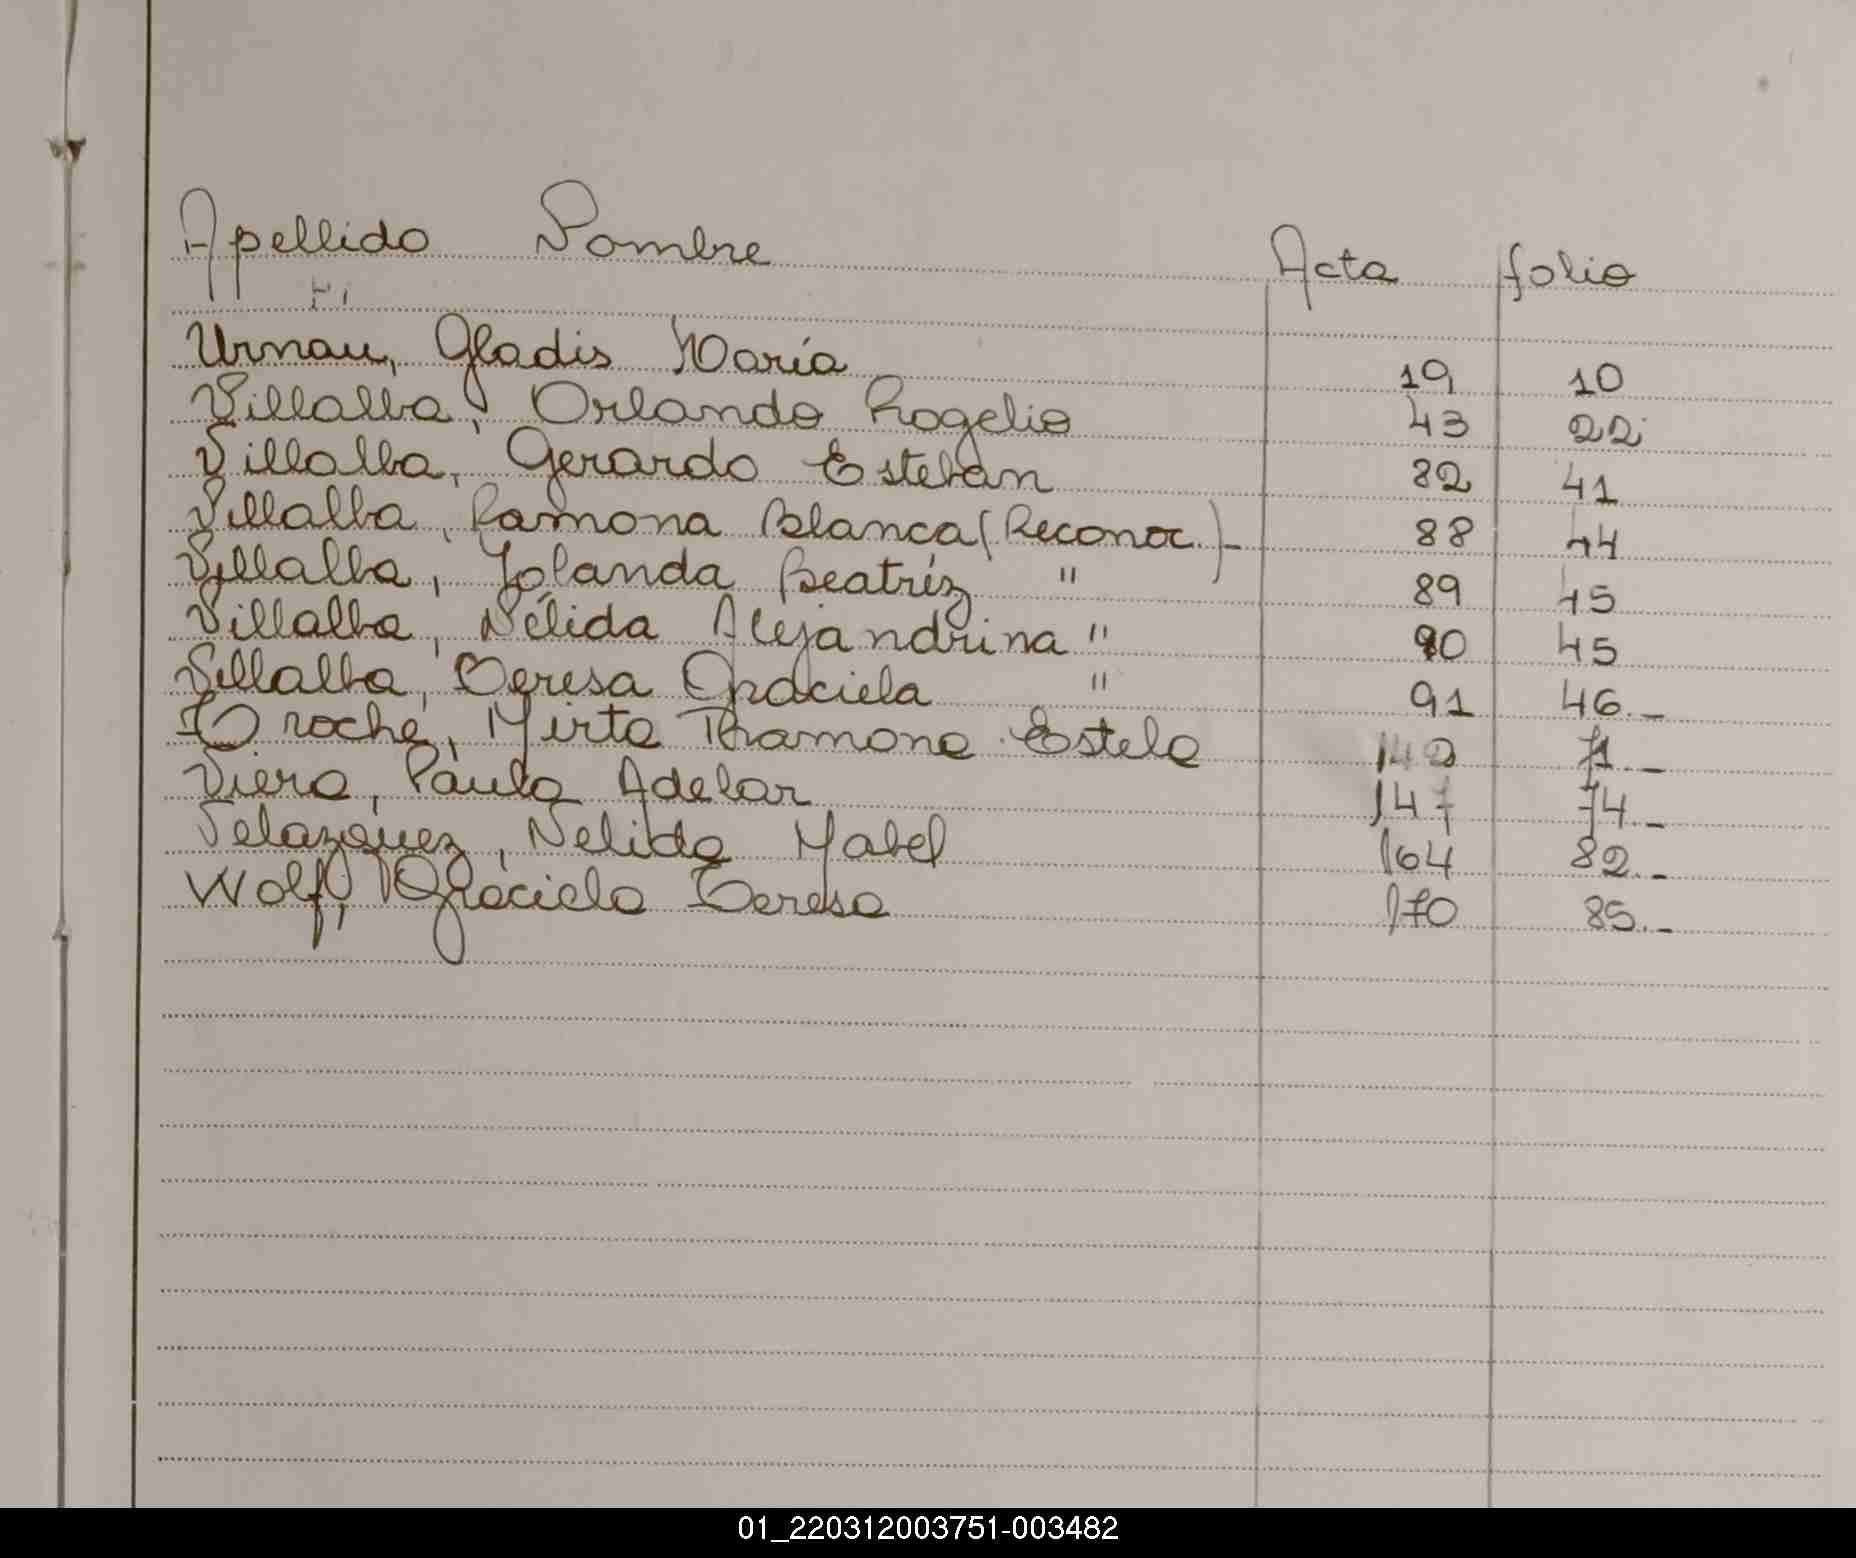 Apellido Nombre Acta folio
Urnau, Gladis María 19 10
Villalba, Orlando Rogelio 43 22
Villalba, Gerardo Esteban 82 41
Villalba, Ramona Blanca (Reconoc.)- 88 44
Villalba, Yolanda Beatríz " 89 45
Villalba, Nélida Alejandrina " 90 45
Villalba, Teresa Graciela " 91 46.-
Mirta Ramona Estela 142 71.-
Viera, Paula Adelar 147 74.-
Velazquez, Nelida Mabel 164 82.-
Wolf, Graciela Teresa 170 85.-
01_220312003751-003482